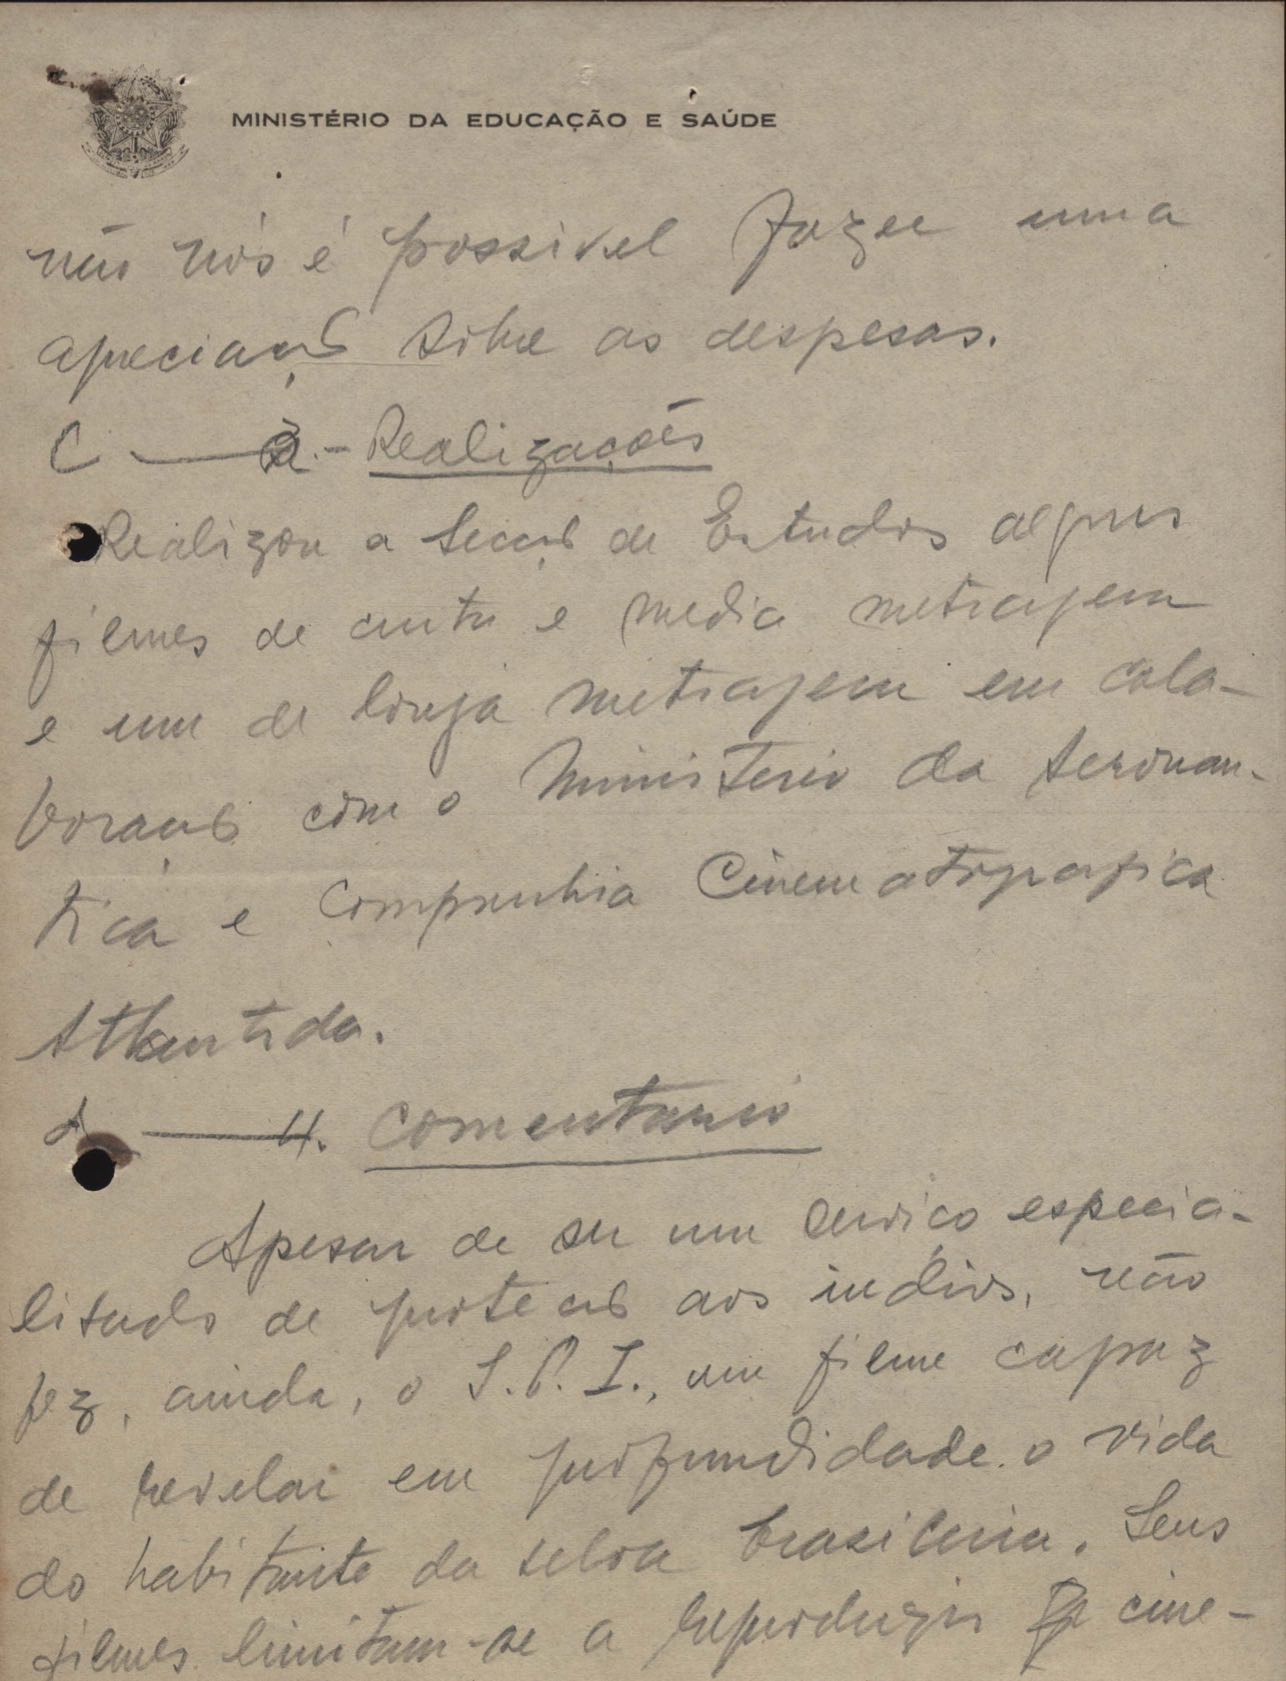 MINISTÉRIO DA EDUCAÇÃO E SAÚDE
não nós é possivel fazer uma
apreciação sobre as despesas.
C — 3 - Realizações
Realizou a Secção de Estudos alguns
filmes de curta e media metragem
e um de longa metragem em cola-
boração com o Ministerio da Aeronau-
tica e Companhia Cinematografica
Atlantida.
d — 4. Comentario
Apesar de ser um serviço especia-
lisado de proteção aos indios, não
fez, ainda, o S.P.I., um filme capaz
de revelar em profundidade a vida
do habitante da selva brasileira. Seus
filmes limitam-se a reproduzir cine-